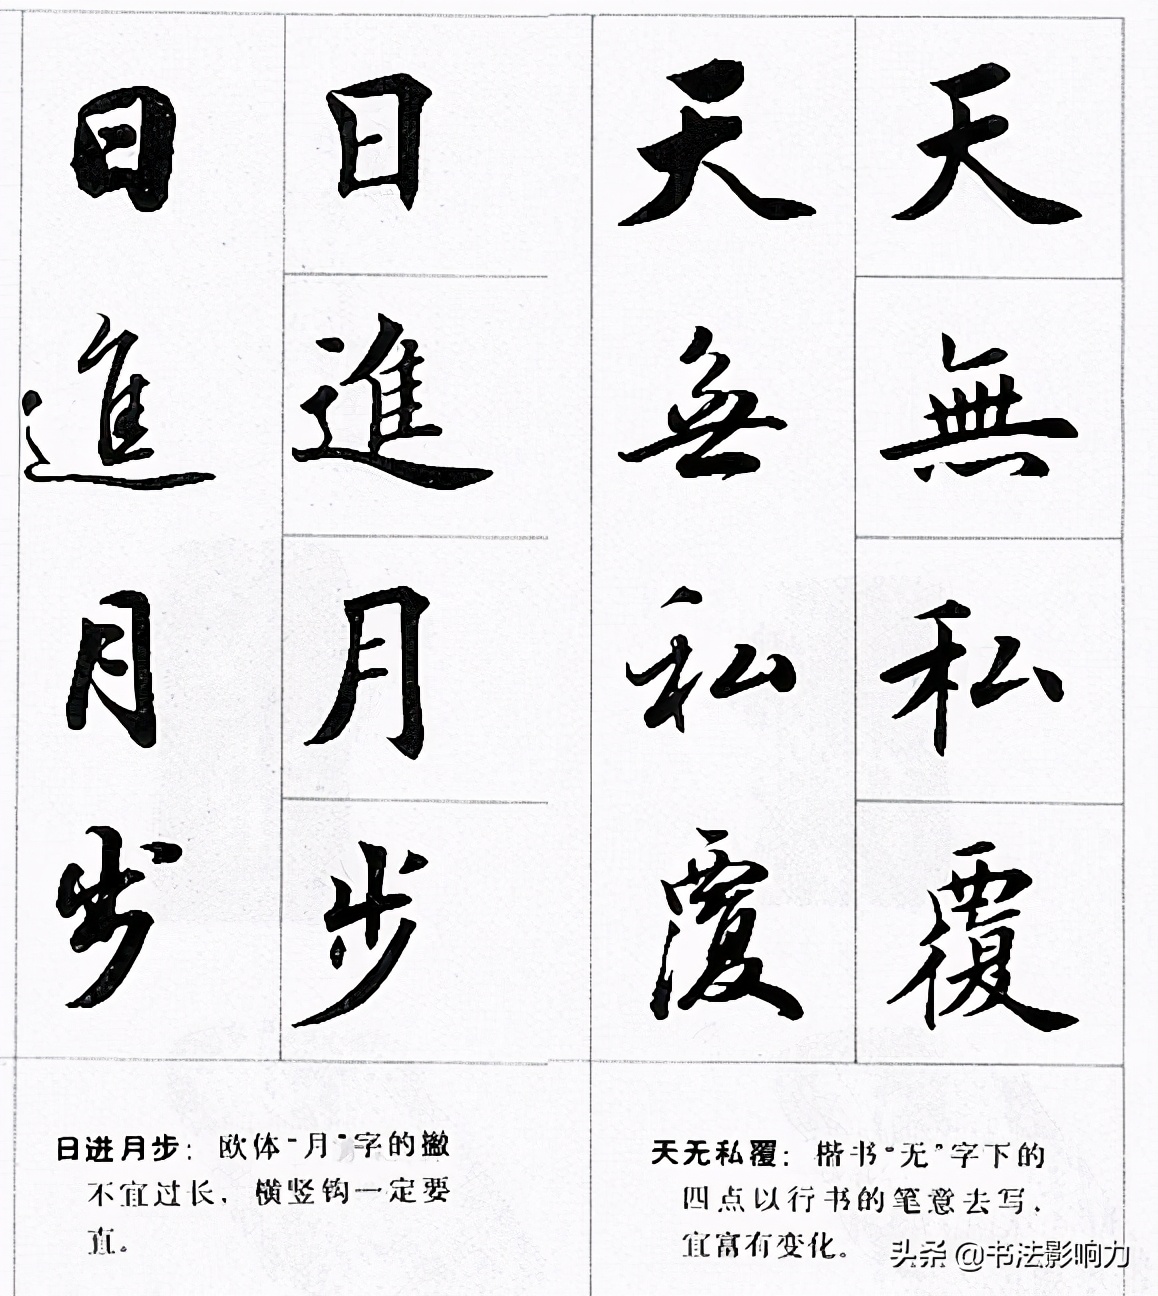 日進月步
日進月步
天無私覆
天無私覆
日进月步：欧体“月”字的撇
不宜过长，横竖钩一定要
直。
天无私覆：楷书“无”字下的
四点以行书的笔意去写，
宜富有变化。
头条 @书法影响力